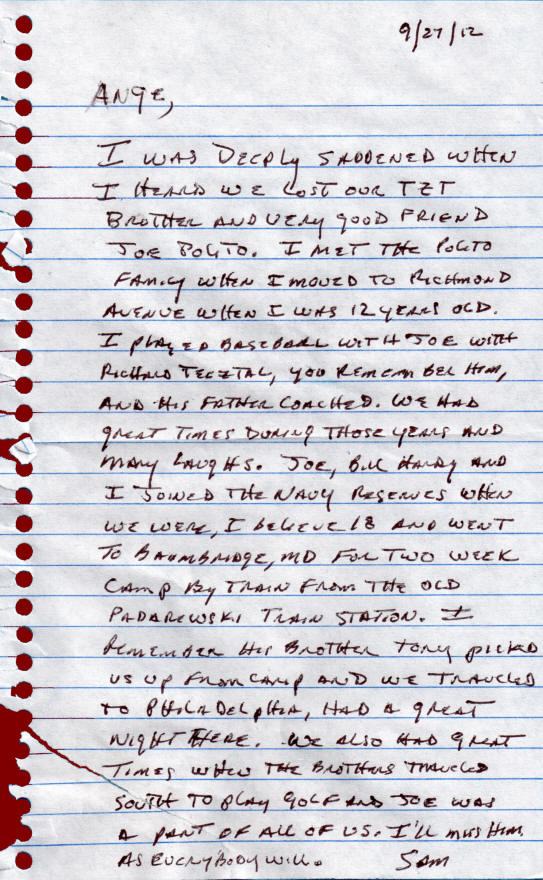 9/27/12
Ange,
I was deeply saddened when
I heard we lost our TZT
Brother and very good friend
Joe Polito. I met the Polito
family when I moved to Richmond
Avenue when I was 12 years old.
I played baseball with Joe with
Richard, you remember him,
and his father coached. We had
great times during those years and
many laughs. Joe, Bill Hardy and
I joined the Navy Reserves when
we were, I believe 18 and went
to Baimbridge, MD for two week
camp by train from the old
Padarewski Train Station. I
remember his brother Tony picked
us up from camp and we traveled
to Philadelphia, had a great
night there. We also had great
times when the brothers traveled
south to play golf and Joe was
a part of all of us. I'll miss him
as everybody will. Sam